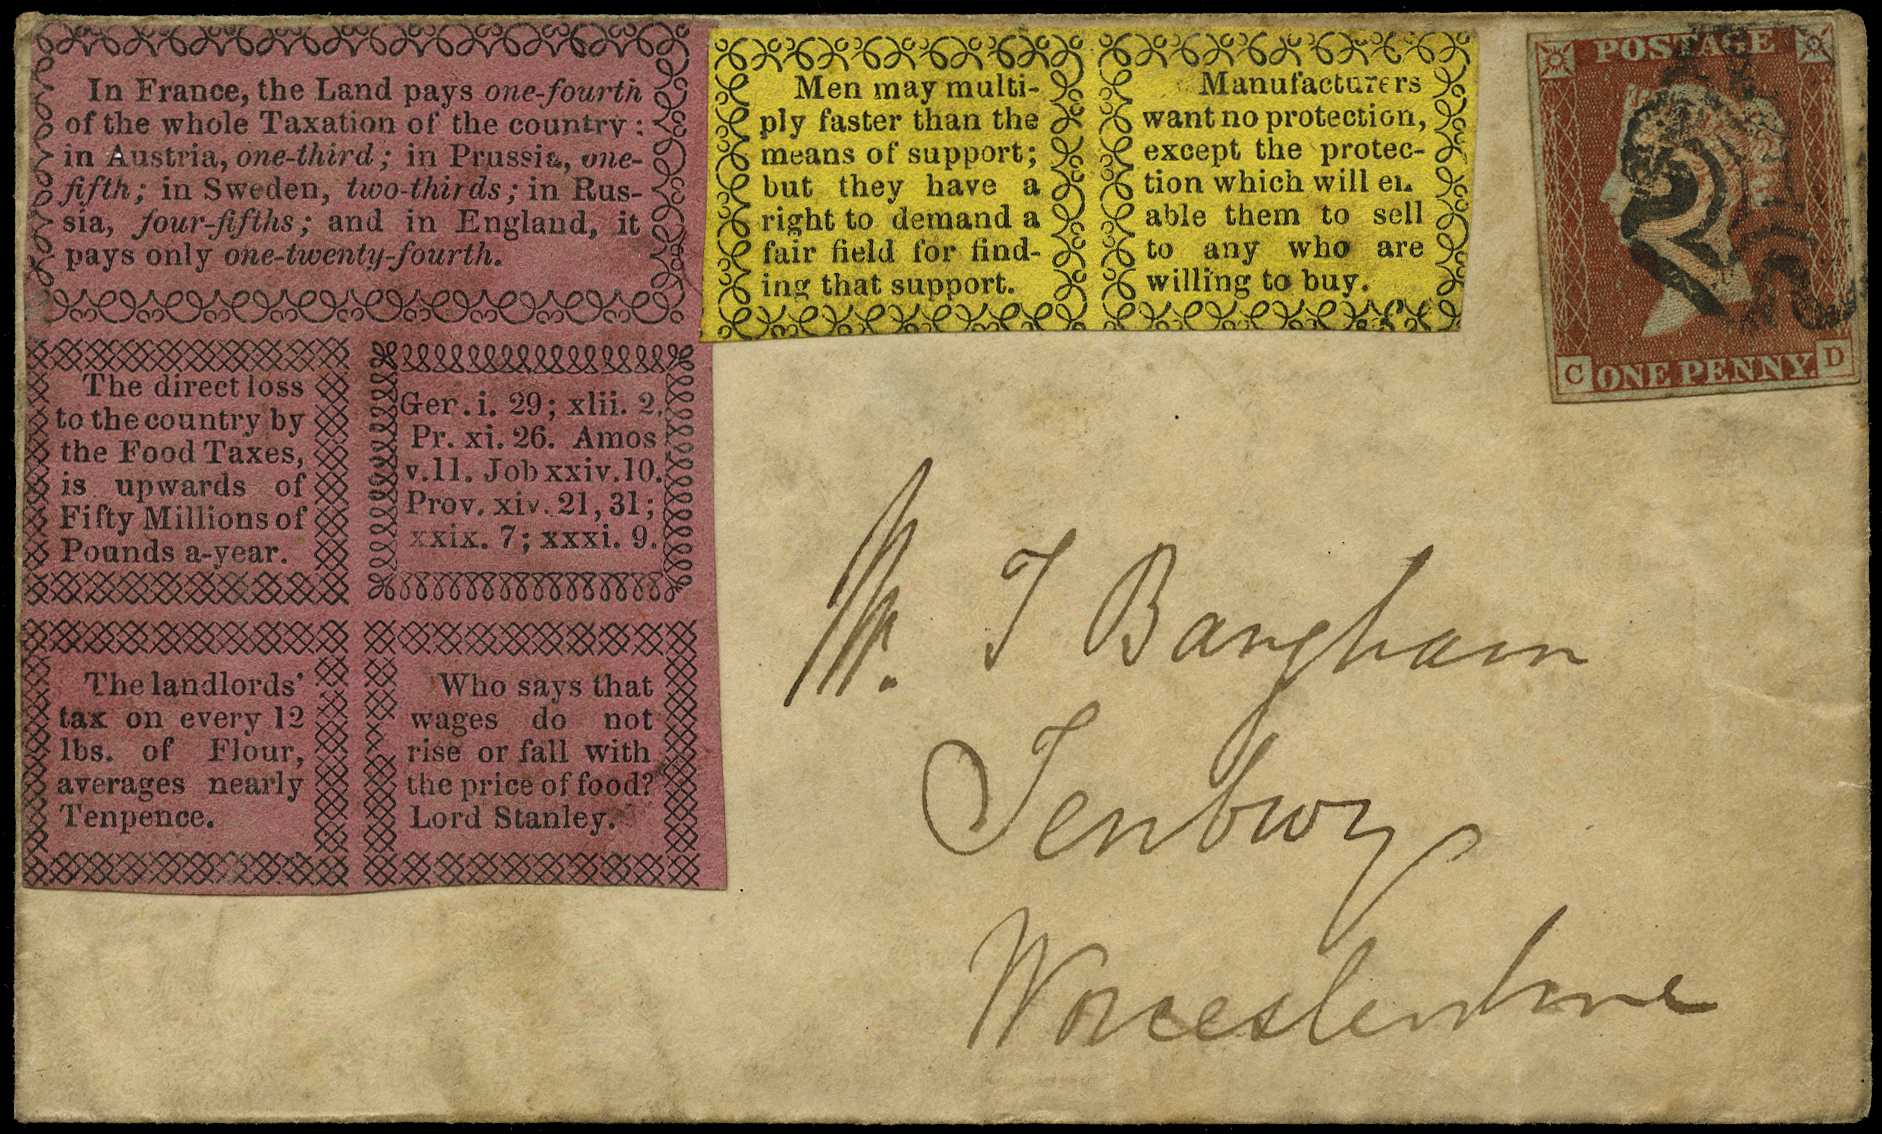 In France, the Land pays one-fourth
of the whole Taxation of the country:
in Austria, one-third; in Prussia, one-
fifth; in Sweden, two-thirds; in Rus-
sia, four-fifths; and in England, it
pays only one-twenty-fourth.
Men may multi-
ply faster than the
means of support;
but they have a
right to demand a
fair field for find-
ing that support.
Manufacturers
want no protection,
except the protec-
tion which will en
able them to sell
to any who are
willing to buy.
POSTAGE
C ONE PENNY. D
The direct loss
to the country by
the Food Taxes,
is upwards of
Fifty Millions of
Pounds a-year.
Ger. i. 29; xlii. 2.
Pr. xi. 26. Amos
v.11. Job xxiv.10.
Prov. xiv. 21, 31;
xxix. 7; xxxi. 9.
The landlords'
tax on every 12
lbs. of Flour,
averages nearly
Tenpence.
Who says that
wages do not
rise or fall with
the price of food?
Lord Stanley.
Mr. T Bangham
Tenbury
Worcestershire